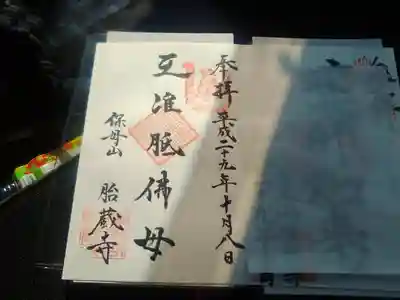 奉拝 平成二十九年十月八日
准胝佛母
保母山 胎蔵寺